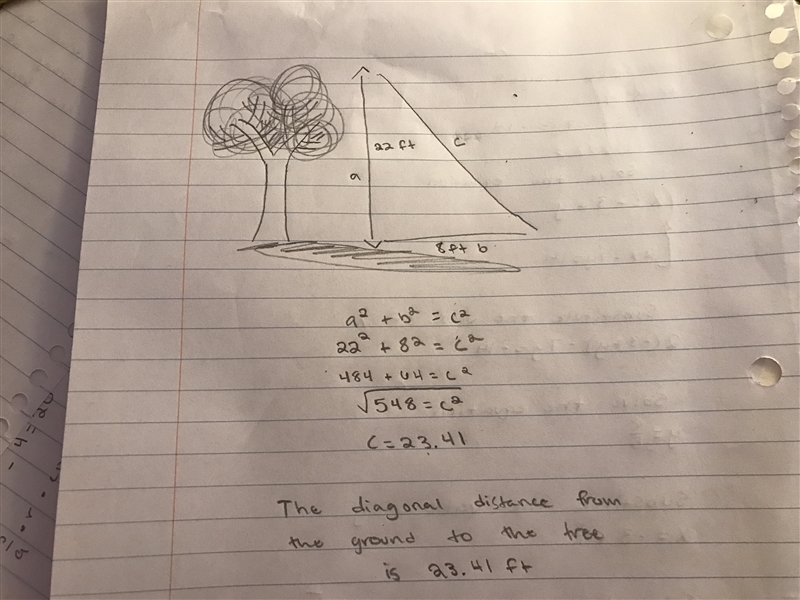 22 ft
c
a
8 ft b
a² + b² = c²
22² + 8² = c²
484 + 64 = c²
√548 = c²
c = 23.41
The diagonal distance from
the ground to the tree
is 23.41 ft